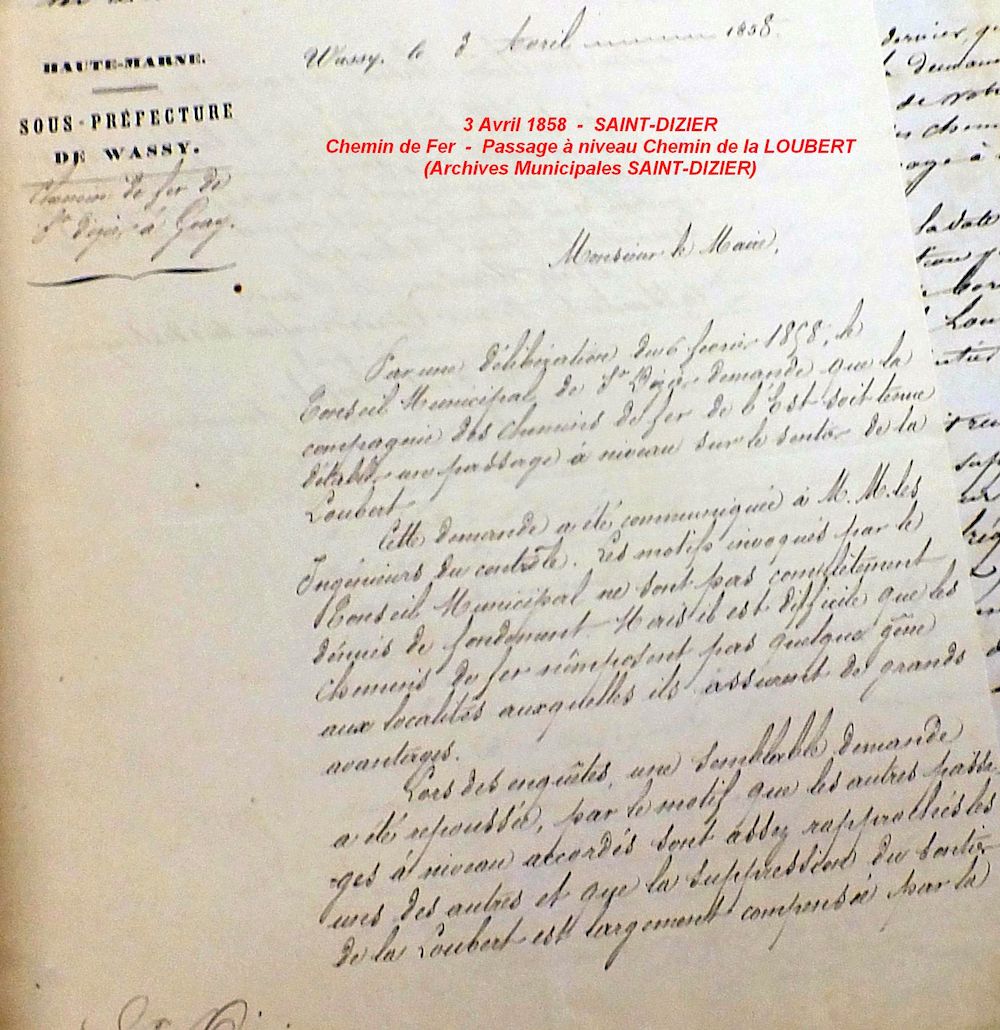 HAUTE-MARNE.
SOUS-PRÉFECTURE
DE WASSY.
Chemin de fer de
St Dizier à Gray.
Wassy, le 3 Avril 1858.
3 Avril 1858 - SAINT-DIZIER
Chemin de Fer - Passage à niveau Chemin de la LOUBERT
(Archives Municipales SAINT-DIZIER)
Monsieur le Maire,
Par une délibération du 6 février 1858, le
Conseil Municipal de St Dizier demande que la
compagnie des chemins de fer de l'Est soit tenue
d'établir un passage à niveau sur le sentier de la
Loubert.
Cette demande a été communiquée à M.M. les
Ingénieurs du contrôle. Les motifs invoqués par le
Conseil Municipal ne sont pas complètement
dénués de fondement. Mais il est difficile que les
chemins de fer n'imposent pas quelque gêne
aux localités auxquelles ils assurent de grands
avantages.
Lors des enquêtes, une semblable demande
a été repoussée, par le motif que les autres passa-
ges à niveau accordés sont assez rapprochés les
uns des autres et que la suppression du sentier
de la Loubert est largement compensée par la
dernier,
la date